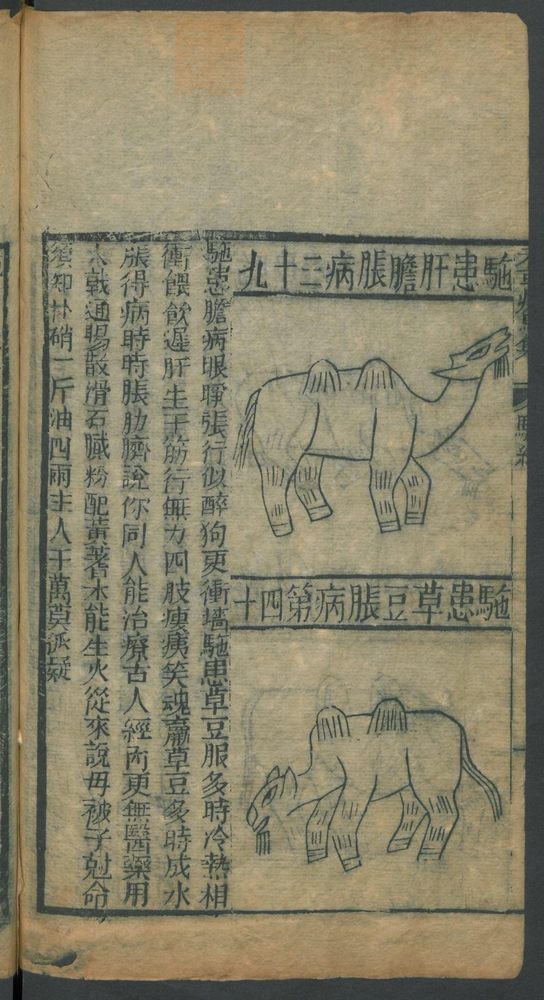 駞患肝膽脹病三十九
駞患草豆脹病第四十
駞患膽病眼睜張行似醉狗更衝墻駞患草豆服多時冷熱相
衝餵飲遲肝生于筋行無力四肢痩痍笑魂草豆多時成水
脹得病時時脹肋臍說你同人能治療古人經內更無醫藥用
大戟通腸散滑石膩粉配黃蓍木能生火從來說母被子尅命
須知朴硝一斤油四兩主人千萬莫狐疑